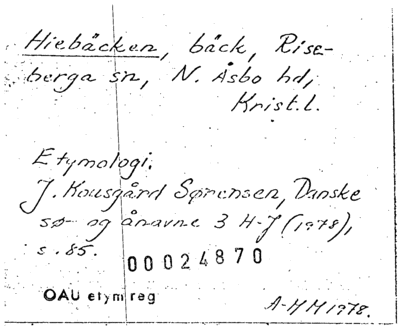 Hiebäcken, bäck, Rise-
berga sn, N. Åsbo hd,
Krist.l.
Etymologi:
J. Kousgård Sørensen, Danske
sø- og ånavne 3 H-J (1978),
s. 85.
00024870
OAU etym reg
A-HM 1978.